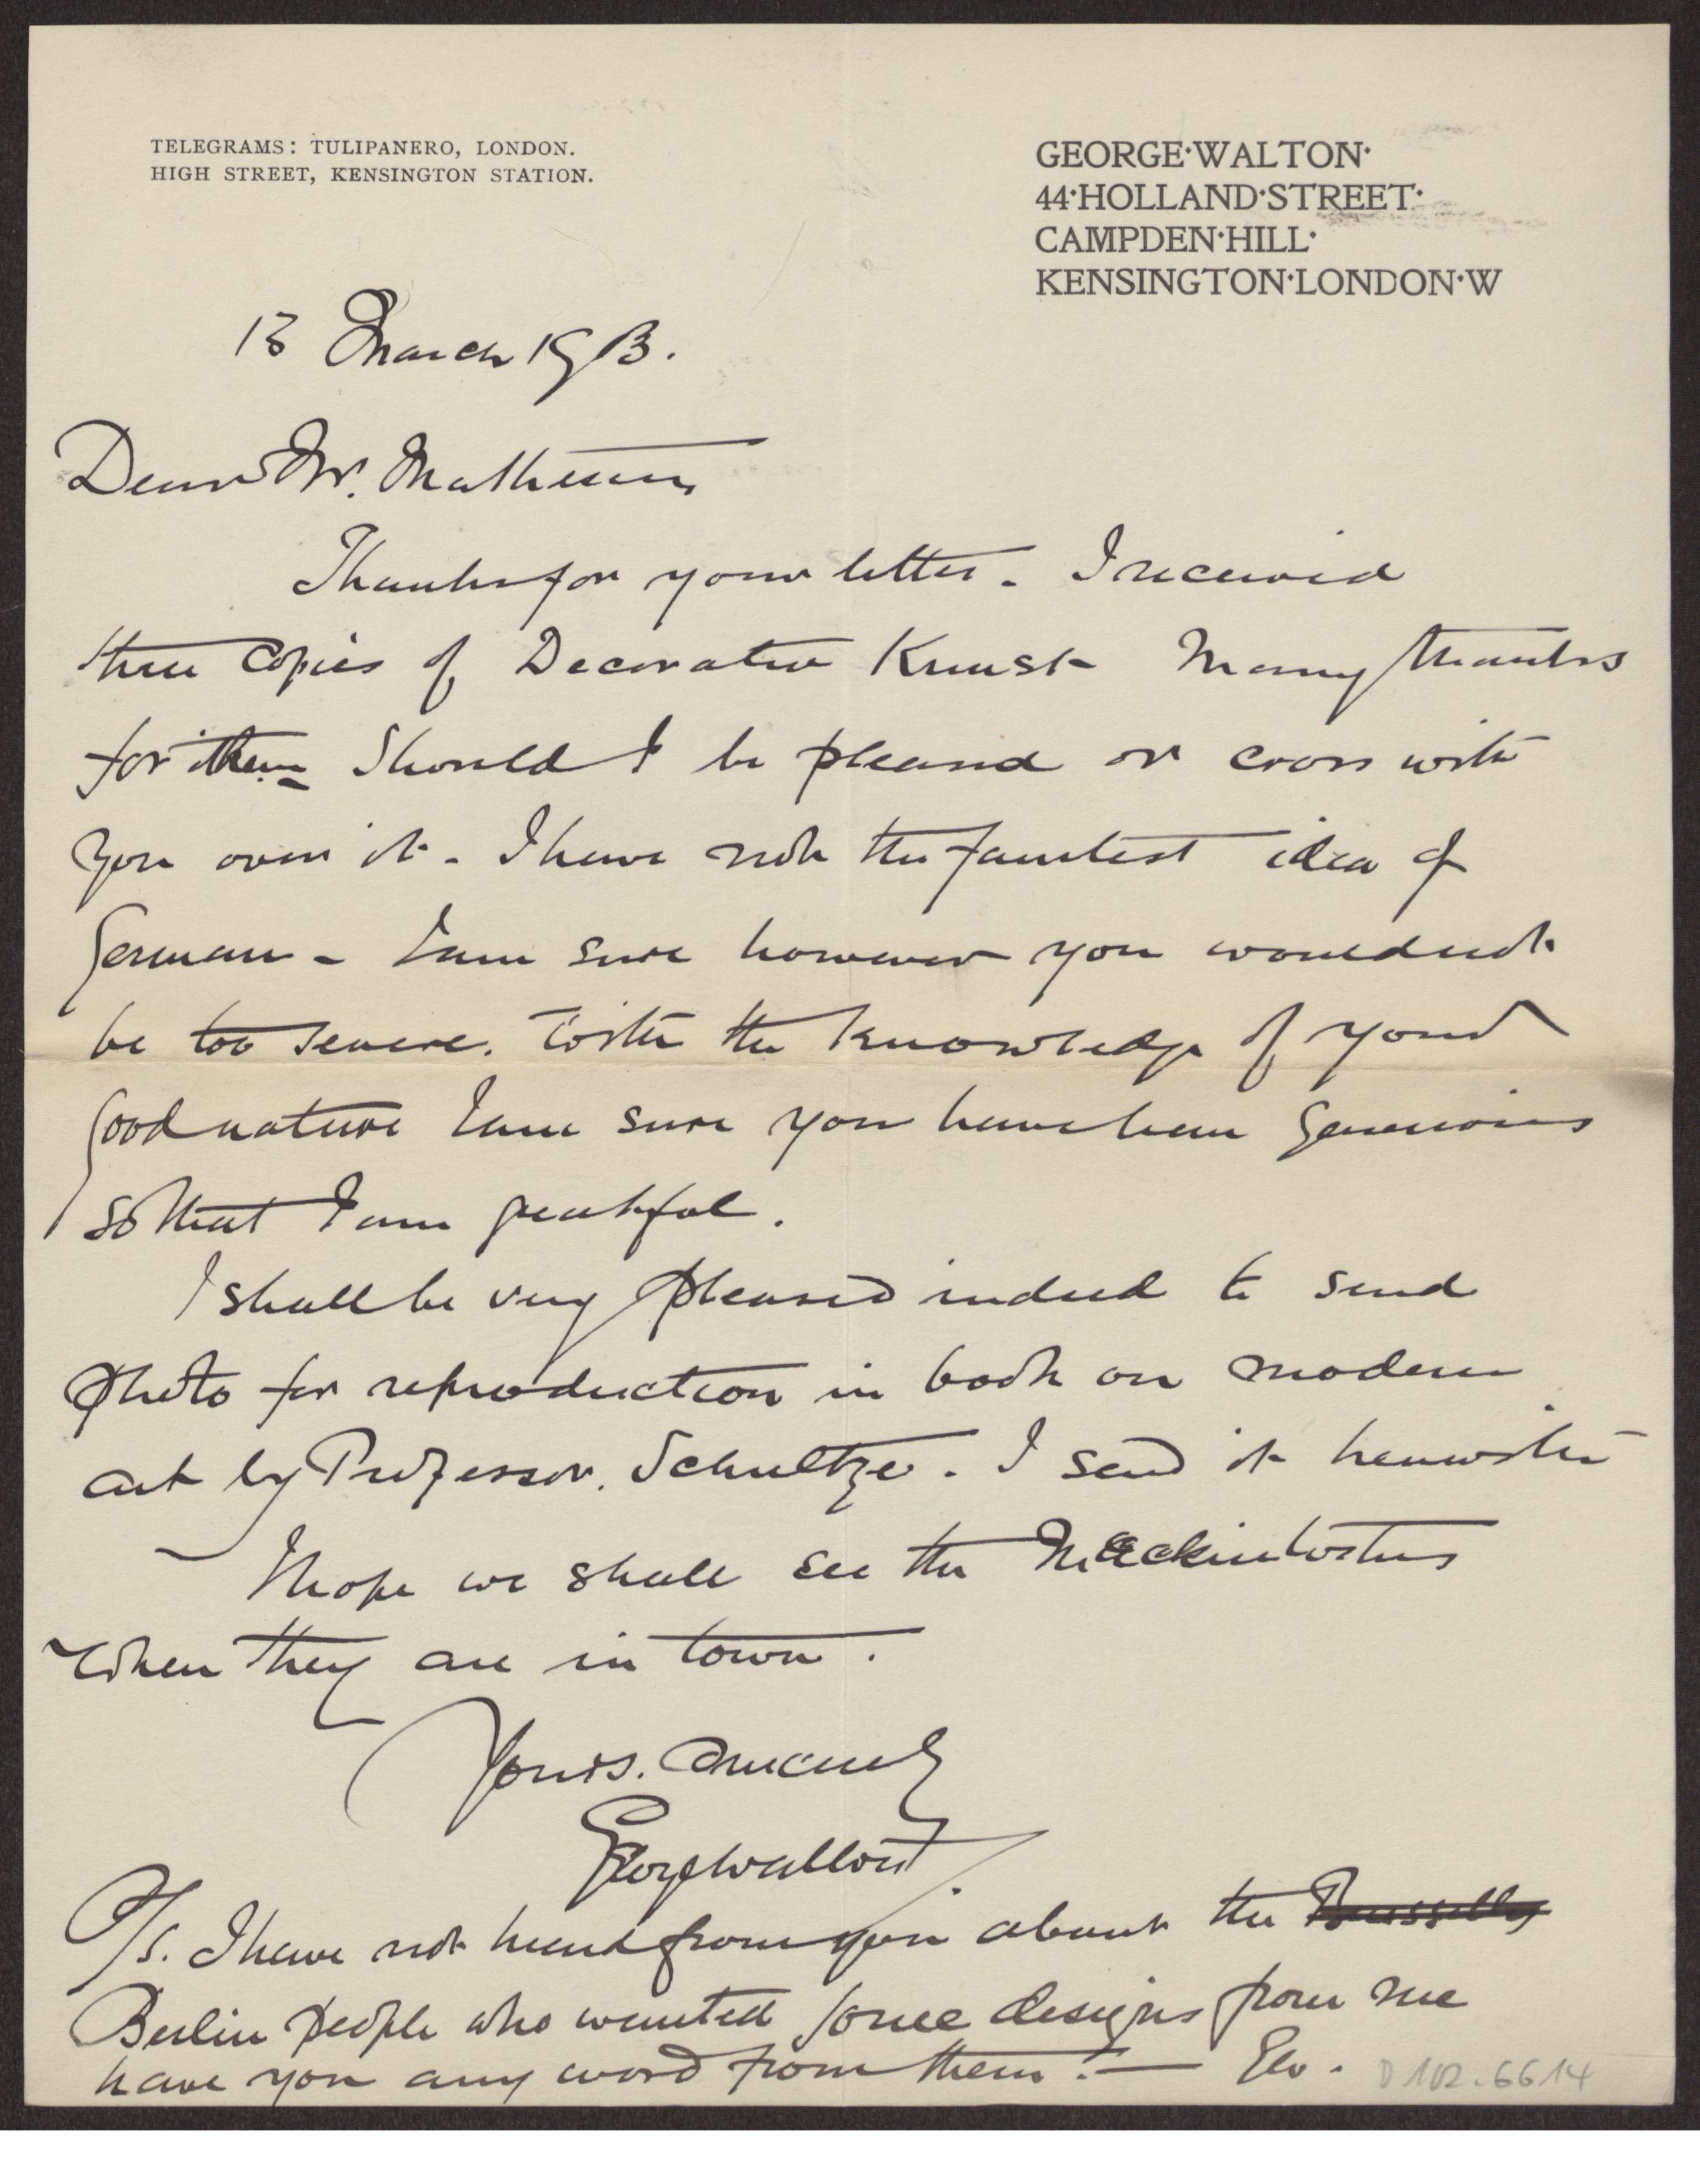 TELEGRAMS: TULIPANERO, LONDON.
HIGH STREET, KENSINGTON STATION.
GEORGE·WALTON·
44·HOLLAND·STREET·
CAMPDEN·HILL·
KENSINGTON·LONDON·W
13 March 1903.
Dear Mr. Mathesius
Thanks for your letter. I received
three copies of Decorative Kunst Many thanks
for them Should I be pleased or cross with
you over it. I have not the faintest idea of
German – I am sure however you would not
be too severe. With the knowledge of your
good nature I am sure you have been generous
so that I am grateful.
I shall be very pleased indeed to send
photo for reproduction in book on modern
art by Professor. Schultze. I send it herewith
I hope we shall see the Mackintoshes
when they are in town.
Yours. sincerely
George Walton
P/S. I have not heard from you about the Brussells
Berlin people who wanted some designs from me
have you any word from them?— GW.
D 102.6614